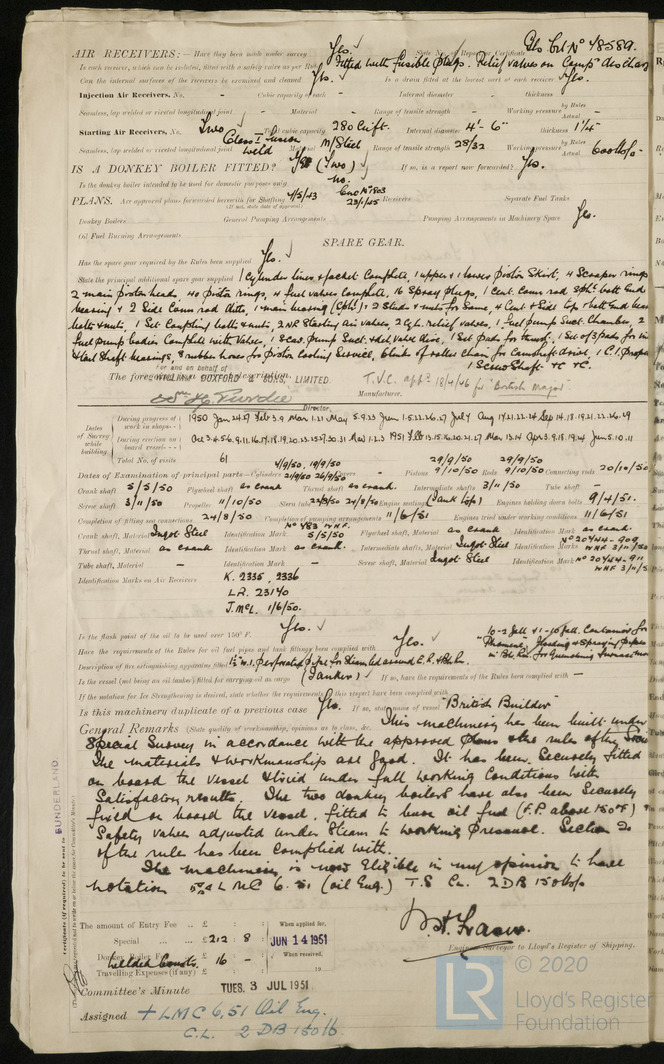 AIR RECEIVERS:— Have they been made under survey Yes. ✓ State No. of Report or Certificate Glo. Crt. No 48589.
Is each receiver, which can be isolated, fitted with a safety valve as per Rule Fitted with fusible plugs. Relief valves on Compr discharge
Can the internal surfaces of the receivers be examined and cleaned Yes. ✓ Is a drain fitted at the lowest part of each receiver Yes.
Injection Air Receivers, No. - Cubic capacity of each - Internal diameter - thickness
Seamless, lap welded or riveted longitudinal joint - Material - Range of tensile strength - Working pressure by Rules Actual
Starting Air Receivers, No. Two Total cubic capacity 280 Cu.ft. Internal diameter 4'-6" thickness 1¼"
Seamless, lap welded or riveted longitudinal joint Class I fusion weld Material M/Steel Range of tensile strength 28/32 Working pressure by Rules Actual 600
IS A DONKEY BOILER FITTED? Yes (Two) ✓ If so, is a report now forwarded? Yes.
Is the donkey boiler intended to be used for domestic purposes only no.
PLANS. Are approved plans forwarded herewith for Shafting 4/5/43 Receivers 23/1/45 Separate Fuel Tanks
(If not, state date of approval)
Donkey Boilers General Pumping Arrangements Pumping Arrangements in Machinery Space Yes.
Oil Fuel Burning Arrangements
SPARE GEAR.
Has the spare gear required by the Rules been supplied Yes. ✓
State the principal additional spare gear supplied 1 Cylinder liner & Jacket Complete, 1 upper & 1 lower Piston Skirt, 4 Scraper rings
2 main piston heads, 40 piston rings, 4 fuel valves complete, 16 Spray plugs, 1 Cent. Conn rod Both End
bearing & 2 Side Conn rod ditto, 1 main bearing 2 Studs & nuts for same, 4 Cent & Side top & bott End
bolts & nuts, 1 Set Coupling bolts & nuts, 2 N.R Starting air valves, 2 Cyl. relief valves, 1 fuel pump Suct. Chamber, 2
fuel pump bodies Complete with Valves, 1 Scav. pump Suct. & del valve discs, 1 Set pads for thrust, 1 Set of 3 pads for
8 rubber hoses for Piston Cooling Service, 6 links of roller chain for Camshaft drive, 1 C.I. Propr
1 Screw Shaft &c &c.
The foregoing is a correct description,
For and on behalf of
WILLIAM DOXFORD & SONS, LIMITED T.V.C. appd 18/4/46 for "British Major"
Manufacturer.
Wm H. Purdie
Director.
Dates of Survey while building
During progress of work in shops - - 1950 Jan 24.27 Feb 3.9 Mar 1.21 May 5.9.23 Jun 1.5.22.26.27 July 4 Aug 14.21.22.24 Sep 14.18.19.21.22.26.29
During erection on board vessel - - Oct 3.4.5.6.9.11.16.17.18.19.20.23.25.27.30.31 Nov 1.2.3 1951 Feb 13.15.16.20.24.27 Mar 13.14 Apr 3.9.18.19.24 Jun 5.10.11
Total No. of visits 61
Dates of Examination of principal parts—Cylinders 4/9/50, 19/9/50 21/9/50 26/9/50 Covers - Pistons 29/9/50 9/10/50 Rods 29/9/50 9/10/50 Connecting rods 20/10/50
Crank shaft 5/5/50 Flywheel shaft as crank Thrust shaft as crank. Intermediate shafts 3/11/50 Tube shaft -
Screw shaft 3/11/50 Propeller 11/10/50 Stern tube 22/8/50 24/8/50 Engine seatings (Tank top) Engines holding down bolts 9/4/51.
Completion of fitting sea connections 24/8/50 Completion of pumping arrangements 11/6/51 Engines tried under working conditions 11/6/51
Crank shaft, Material Ingot Steel Identification Mark No 483 WHF. 5/5/50 Flywheel shaft, Material as crank Identification Mark as crank.
Thrust shaft, Material as crank Identification Mark as crank. Intermediate shafts, Material Ingot Steel Identification Marks No 20444-909 WHF 3/11/50
Tube shaft, Material — Identification Mark — Screw shaft, Material Ingot Steel Identification Mark No 20444-911 WHF 3/11/5
Identification Marks on Air Receivers K. 2335, 2336
LR. 23140
J.McL. 1/6/50.
Is the flash point of the oil to be used over 150° F. Yes. ✓
Have the requirements of the Rules for oil fuel pipes and tank fittings been complied with Yes. ✓
10-2 Gall & 1-10 Gall. Containers for "Phomene" & Spraying Pipes in Blr Rm for Quenching
Description of fire extinguishing apparatus fitted 1½" W.I. Perforated pipe for Steam led around E.R. & Blr Rm.
Is the vessel (not being an oil tanker) fitted for carrying oil as cargo (Tanker) ✓ If so, have the requirements of the Rules been complied with —
If the notation for Ice Strengthening is desired, state whether the requirements in this respect have been complied with
Is this machinery duplicate of a previous case Yes. If so, state name of vessel "British Builder"
General Remarks (State quality of workmanship, opinions as to class, &c. This machinery has been built under
Special Survey in accordance with the approved plans & the rules of the
The materials & workmanship are good. It has been Securely fitted
on board the vessel & tried under full working Conditions with
Satisfactory results. The two donkey boilers have also been Securely
fixed on board the vessel, fitted to burn oil fuel (F.P. above 150°F) &
Safety valves adjusted under Steam to working pressure. Section 20
of the rules has been complied with.
The machinery is now Eligible in my opinion to have
notation + LMC 6.51 (oil Eng.) T.S CL. 2DB 150 lbs
SUNDERLAND.
Certificate (if required) to be sent to
The amount of Entry Fee .. £ : :
Special ... £212 : 8 :
Donkey Boiler Fee Welded Consts. £ 16 : - :
Travelling Expenses (if any) £ : :
When applied for, JUN 14 1951
When received, 19
W.H. Fraser.
Engineer Surveyor to Lloyd's Register of Shipping.
Committee's Minute TUES. 3 JUL 1951
Assigned + LMC 6,51 Oil Eng.
C.L. 2 DB 150 lb.
LR
© 2020
Lloyd's Register
Foundation